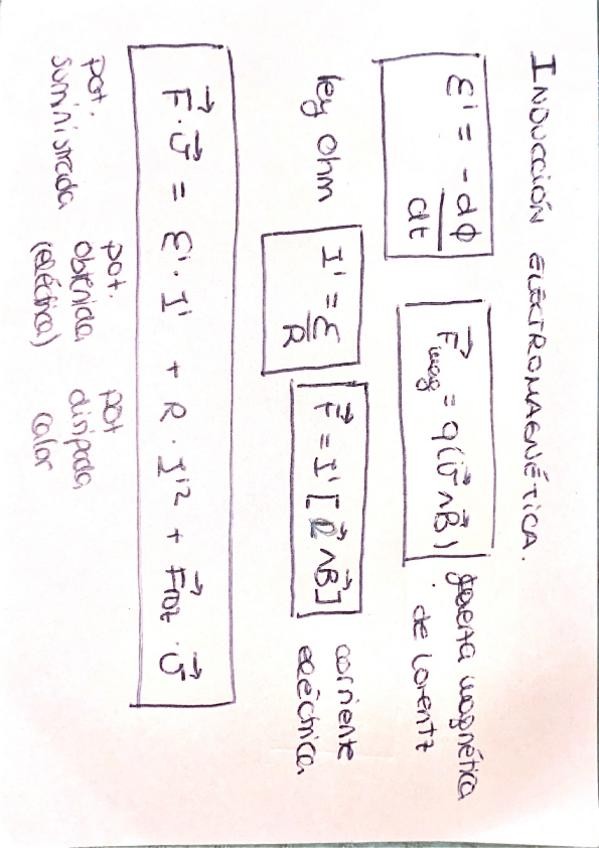 INDUCCIÓN ELÉCTROMAGNÉTICA.
Ɛⁱ = -dϕ/dt
F⃗mag = q(v⃗∧B⃗)
fuerza magnética
de Lorentz
ley Ohm
Iⁱ = Ɛ/R
F⃗ = Iⁱ[ℓ⃗∧B⃗]
corriente
eléctrica
F⃗·v⃗ = Ɛⁱ·Iⁱ + R·Iⁱ² + F⃗roz·v⃗
pot.
suministrada
pot.
obtenida
(eléctrica)
pot
disipada
calor